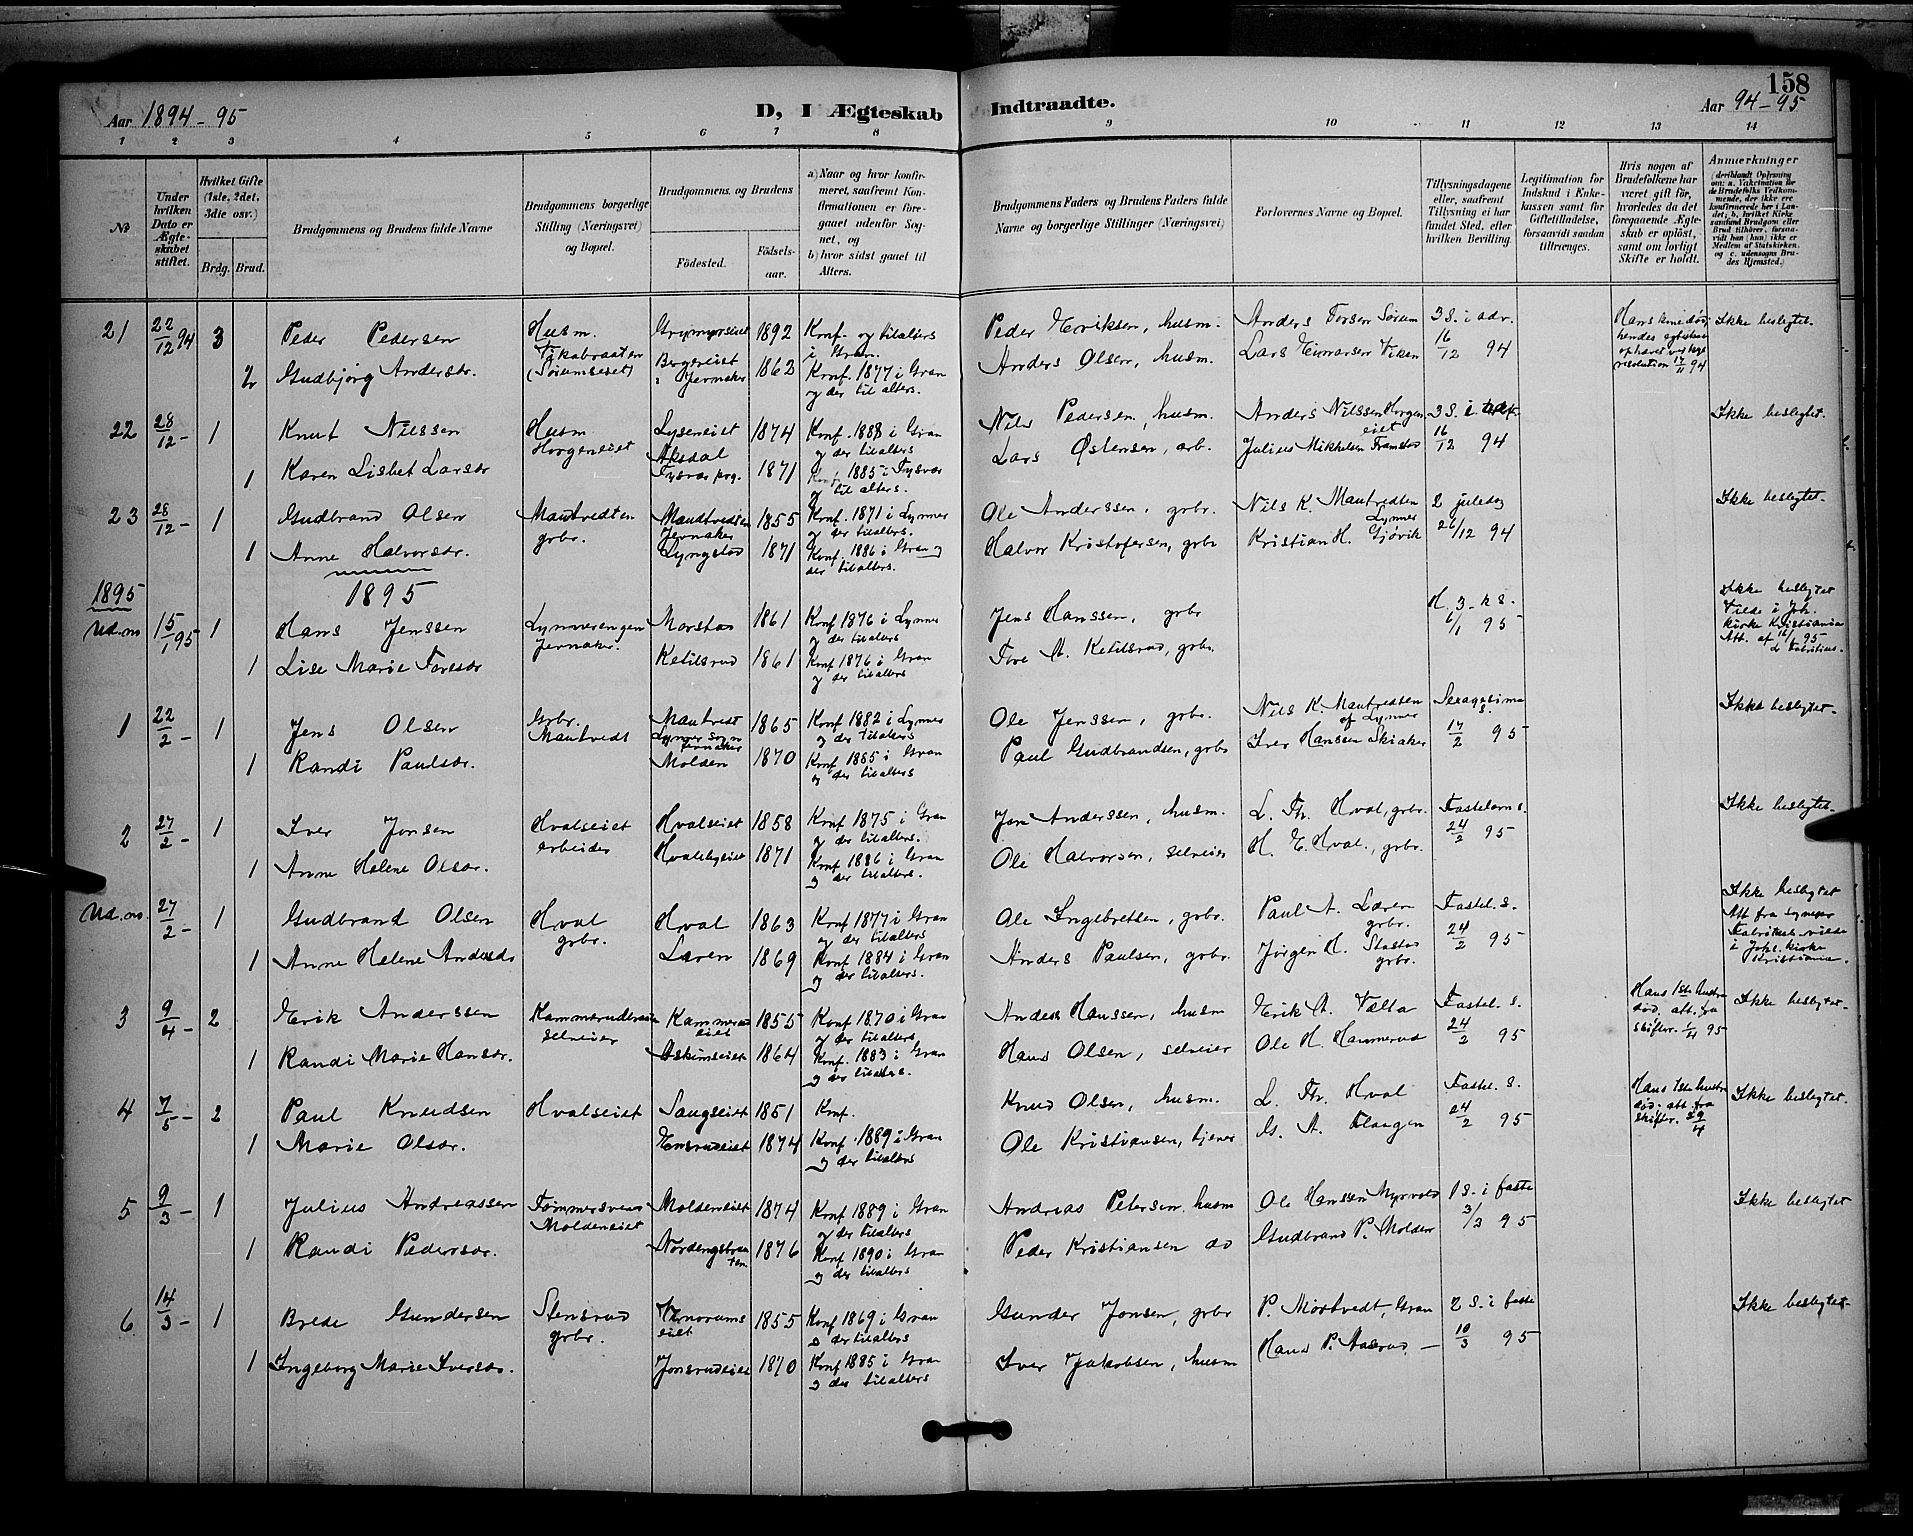 158
Aar 1894-95
D, I Ægteskab Indtraadte.
Aar 94-95
1 2 3 4 5 6 7 8 9 10 11 12 13 14
No
Under hvilken Dato er Ægteskabet stiftet.
Hvilket Gifte (1ste, 2det, 3die osv.)
Brdg. Brud.
Brudgommens og Brudens fulde Navne
Brudgommens borgerlige Stilling (Næringsvei) og Bopæl.
Brudgommens, og Brudens
Födested.
Födselsaar.
a) Naar og hvor konfirmeret, saafremt Konfirmationen er foregaaet udenfor Sognet, og
b) hvor sidst gaaet til Alters.
Brudgommens Faders og Brudens Faders fulde Navne og borgerlige Stillinger (Næringsvei)
Forlovernes Navne og Bopæl.
Tillysningsdagene eller, saafremt Tillysning ei har fundet Sted, efter hvilken Bevilling.
Legitimation for Indskud i Enkekassen samt for Giftetilladelse, forsaavidt saadan tiltrænges.
Hvis nogen af Brudefolkene har været gift för, hvorledes da det foregaaende Ægteskab er oplöst, samt om lovligt Skifte er holdt.
Anmærkninger
21 22/12 94 3 Peder Pedersen Husm. 1892 Konf. og til alters i Gran. Peder Eriksen, husm. Anders Torsen Sørum 3 S. i adv. Ikke beslegtet.
Vikabraaten (Sørumseiet)
2 Gudbjørg Andersdr. Jevnaker 1862 Konf. 1877 i Gran og der til alters. Anders Olsen, husm. Lars Einarsen Viken 16/12 94
22 28/12 - 1 Knut Nilssen Husm Horgeneiet Lyseneiet 1874 Konf. 1888 i Gran og der til alters Nils Pedersen, husm. Anders Nilssen Horgeneiet 3 S. i adv. Ikke beslegtet.
1 Karen Lisbet Larsdr Aksdal Tysvær prg. 1871 Konf. 1885 i Tysvær og til alters. Lars Østensen, arb. Julius Mikkelsen Framstad 16/12 94
23 28/12 - 1 Gudbrand Olsen Mautvedten grbr. Jevnaker 1855 Konf. 1871 i Lynner og der til alters. Ole Anderssen, grbr. Nils K. Mautvedten Lynner 2 juledag Ikke beslegtet.
1 Anne Halvorsdr. Lyngstad 1871 Konf. 1886 i Gran og der til alters. Halvor Kristofersen, grbr Kristian H. Gjövik 26/12 94
1895
1895
Ud.sn 15/1 95 1 Hans Jenssen Lynnerengen Jevnaker. Morstad 1861 Konf 1876 i Lynner og der til alters Jens Hanssen, grbr H. 3 k S. 6/1 95 Ikke beslegtet Viede i Joh. kirke Kristiania Att. af 16/1 95
1 Lise Marie Toresdr Ketilsrud 1861 Konf 1876 i Gran og der til alters Tore A. Ketilsrud, grbr.
1 22/2 - 1 Jens Olsen Grbr. Mautvedt Lynner sogn Jevnaker 1865 Konf 1882 i Lynner og der til alters Ole Jenssen, grbr. Nils K. Mautvedten af Lynner 17/2 95 Ikke beslegtet.
1 Randi Paulsdr. Molden 1870 Konf 1885 i Gran og der til alters Paul Gudbrandsen, grbr Iver Hanssen Skiaker
2 27/2 - 1 Iver Jonsen Hvalseiet arbeider Hvalseiet 1858 Konf 1875 i Gran og der til alters. Jon Anderssen, husm. L. Th. Hval, grbr. Fastelavns. Ikke beslegtet.
1 Anne Helene Olsdr. Hvalsbyeiet 1871 Konf 1886 i Gran og der til alters. Ole Halvorsen, selveier H. E. Hval, grbr. 24/2 95
Ud.sn. 27/2 - 1 Gudbrand Olsen Hval grbr. Hval 1863 Konf 1877 i Gran og der til alters Ole Ingebretsen, grbr. Paul A. Læren grbr. Fastel. S. Ikke beslegtet
1 Anne Helene Andersdr Læren 1869 Konf 1884 i Gran og der til alters. Anders Paulsen, grbr. Jörgen H. Stastad grbr. 24/2 95 i Johs. kirke Kristiania.
3 9/4 - 2 Erik Anderssen selveier 1855 Konf 1870 i Gran og der til alters Anders Hanssen, husm Erik A. Valta Fastel. S. Hans 1ste hustru död. att. fra skifter. 1/4 95 Ikke beslegtet.
1 Randi Marie Hansdr. Askimseiet 1864 Konf. 1883 i Gran og der til alters. Hans Olsen, selveier Ole H. Hammerud 24/2 95
4 7/5 - 2 Paul Knudsen Hvalseiet Saugseiet 1851 Konf. Knud Olsen, husm. L. Th. Hval Fastel. S. Hans 1ste hustru död. att. fra skifter. 29/4 Ikke beslegtet.
1 Marie Olsdr. Ensrudeiet 1874 Konf. 1889 i Gran og der til alters Ole Kristiansen, tjener 24/2 95
5 9/3 - 1 Julius Andreassen Moldeneiet Moldeneiet 1874 Konf 1889 i Gran og der til alters Andreas Petersen husm Ole Hanssen Myrvold 1 S. i faste Ikke beslegtet
1 Randi Pedersdr. 1876 Konf 1890 i Gran og der til alters Peder Kristiansen do Gudbrand P. Molden 3/3 95
6 14/3 - 1 Brede Gundersen Stensrud grbr. 1855 Konf 1869 i Gran og der til alters Gunder Jonsen, grbr P. Mortvedt, Gran 2 S. i faste Ikke beslegtet
1 Ingeborg Marie Iversdr. Jonsrudeiet 1870 Konf 1885 i Gran og der til alters Iver Jakobsen, husm Hans P. Aaserud - 10/3 95